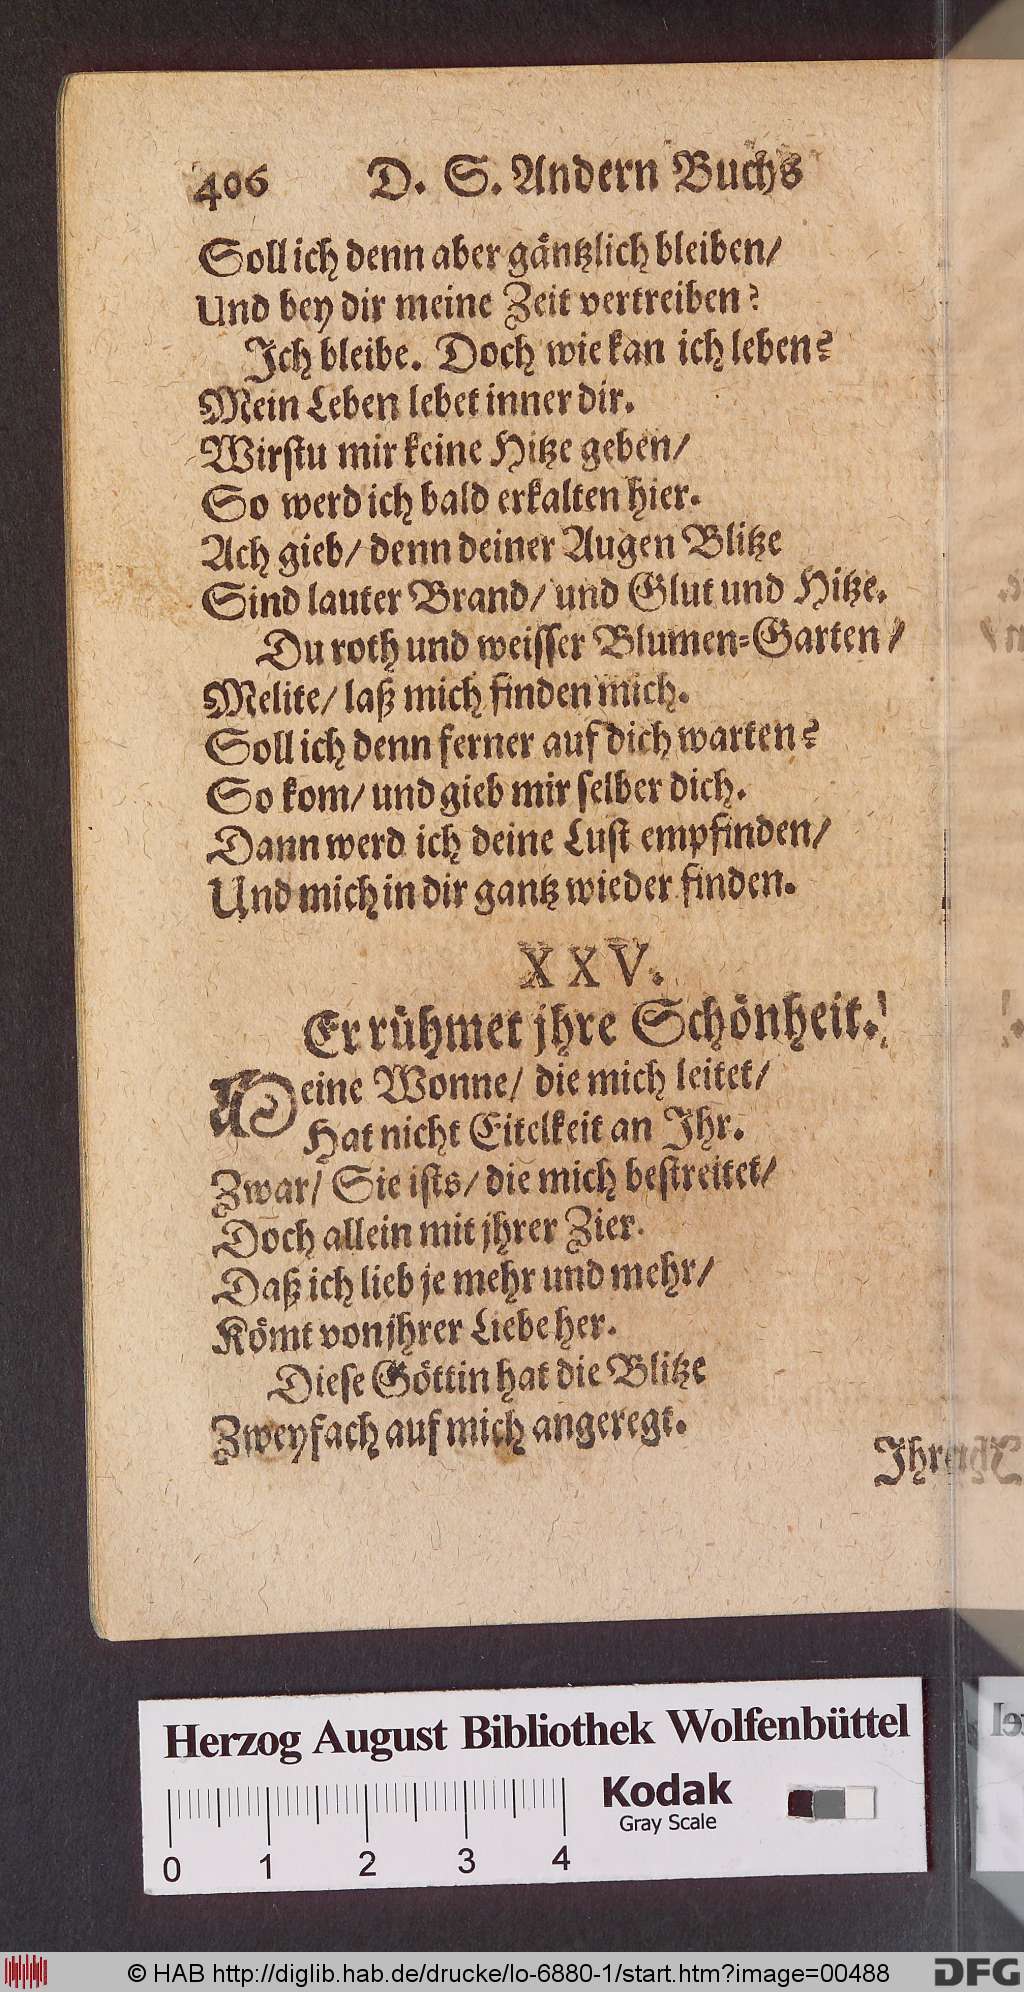 406 D. S. Andern Buchs
Soll ich denn aber gäntzlich bleiben/
Und bey dir meine Zeit vertreiben?
Ich bleibe. Doch wie kan ich leben?
Mein Leben lebet inner dir.
Wirstu mir keine Hitze geben/
So werd ich bald erkalten hier.
Ach gieb/ denn deiner Augen Blitze
Sind lauter Brand/ und Glut und Hitze.
Du roth und weisser Blumen=Garten/
Melite/ laß mich finden mich.
Soll ich denn ferner auf dich warten?
So kom/ und gieb mir selber dich.
Dann werd ich deine Lust empfinden/
Und mich in dir gantz wieder finden.
XXV.
Er rühmet jhre Schönheit.
Meine Wonne/ die mich leitet/
Hat nicht Eitelkeit an Ihr.
Zwar/ Sie ists/ die mich bestreitet/
Doch allein mit jhrer Zier.
Daß ich lieb je mehr und mehr/
Kömt von jhrer Liebe her.
Diese Göttin hat die Blitze
Zweyfach auf mich angeregt.
Herzog August Bibliothek Wolfenbüttel
Kodak
Gray Scale
0 1 2 3 4
© HAB http://diglib.hab.de/drucke/lo-6880-1/start.htm?image=00488
DFG